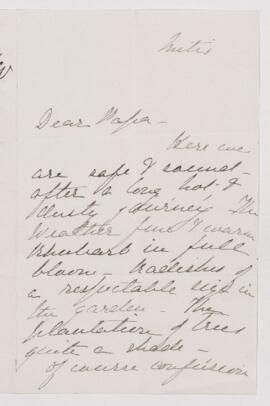 Metis
Dear Papa -
Here we
are safe & sound -
after a long hot &
dusty journey. The
weather fine & warm
Rhubarb in full
bloom - Radishes of
a respectable size in
the garden - The
plantation of trees
quite a shade -
of course confusion